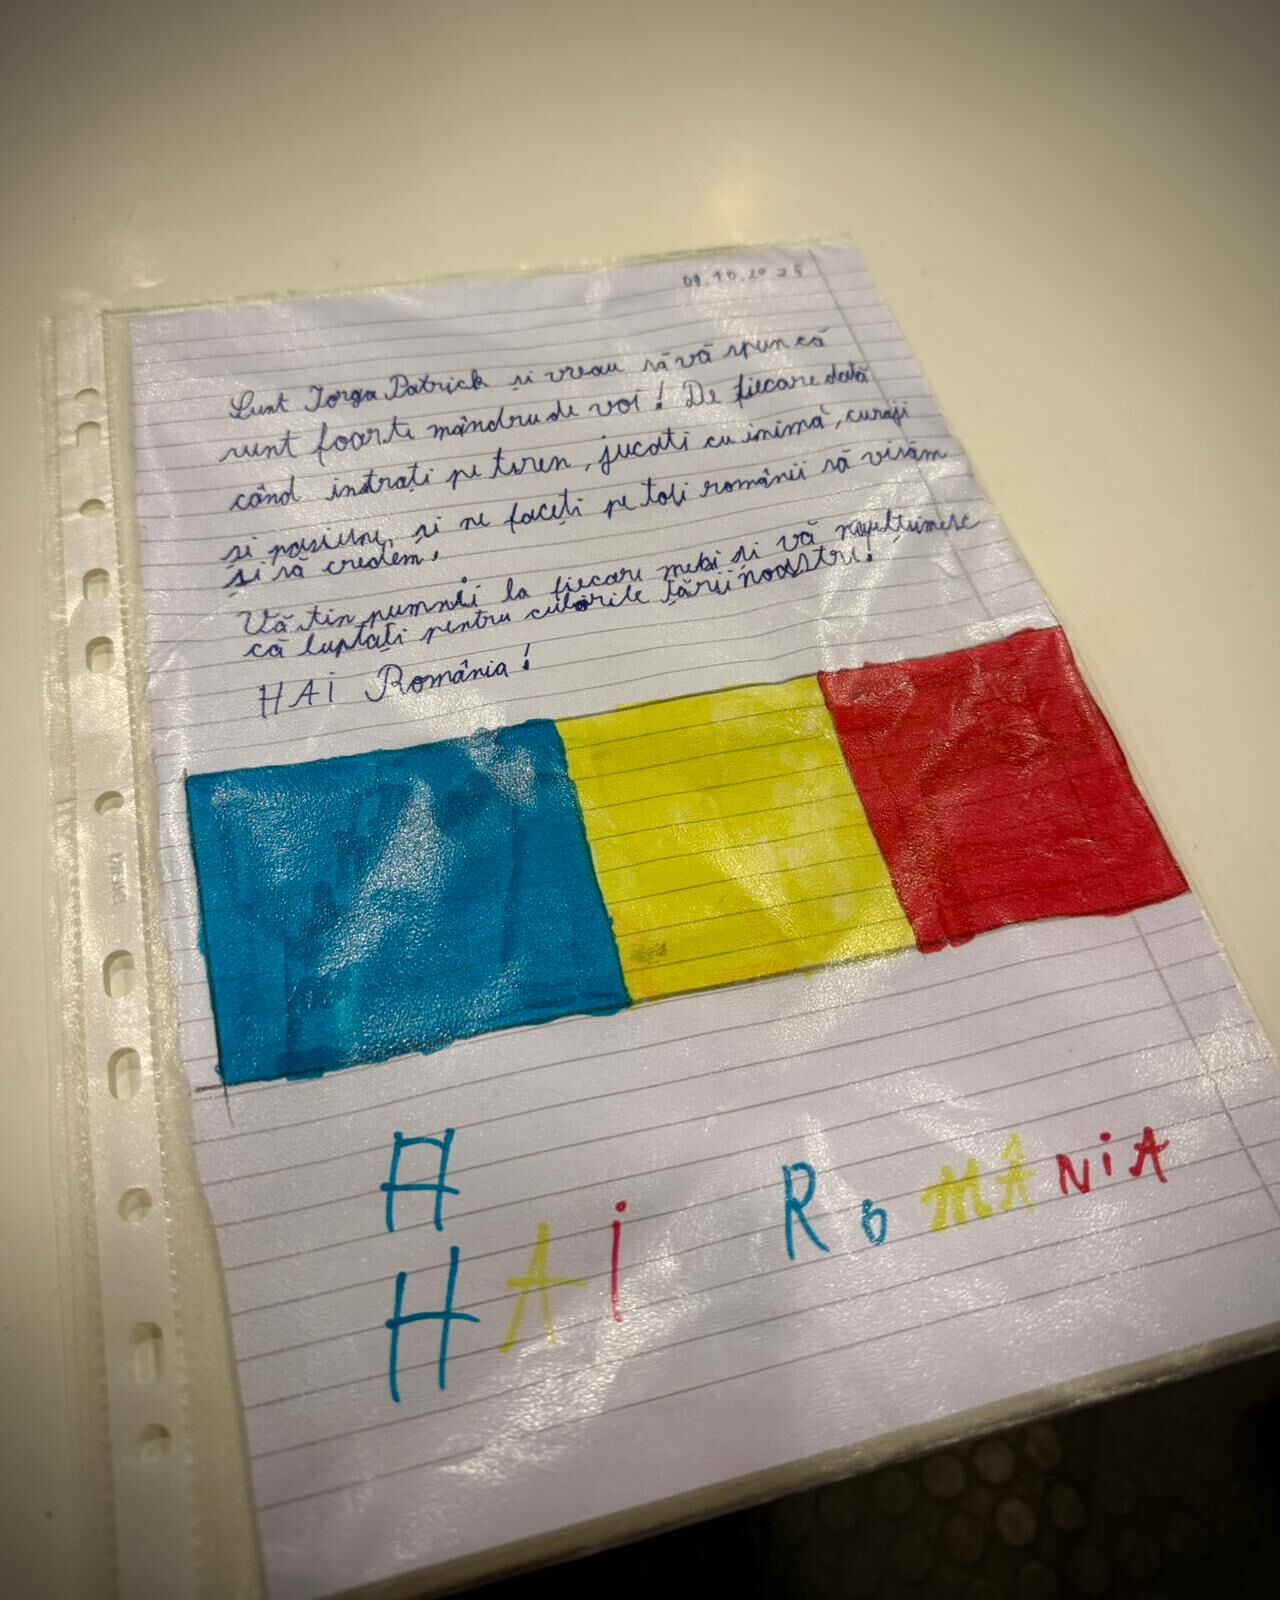 09.10.2025
Sunt Iorga Patrick și vreau să vă spun că
sunt foarte mândru de voi! De fiecare dată
când intrați pe teren, jucați cu inimă, curaj
și pasiune, și ne faceți pe toți românii să visăm
și să credem.
Vă țin pumnii la fiecare meci și vă mulțumesc
că luptați pentru culorile țării noastre!
HAI România!
H
HAi RoMÂNiA